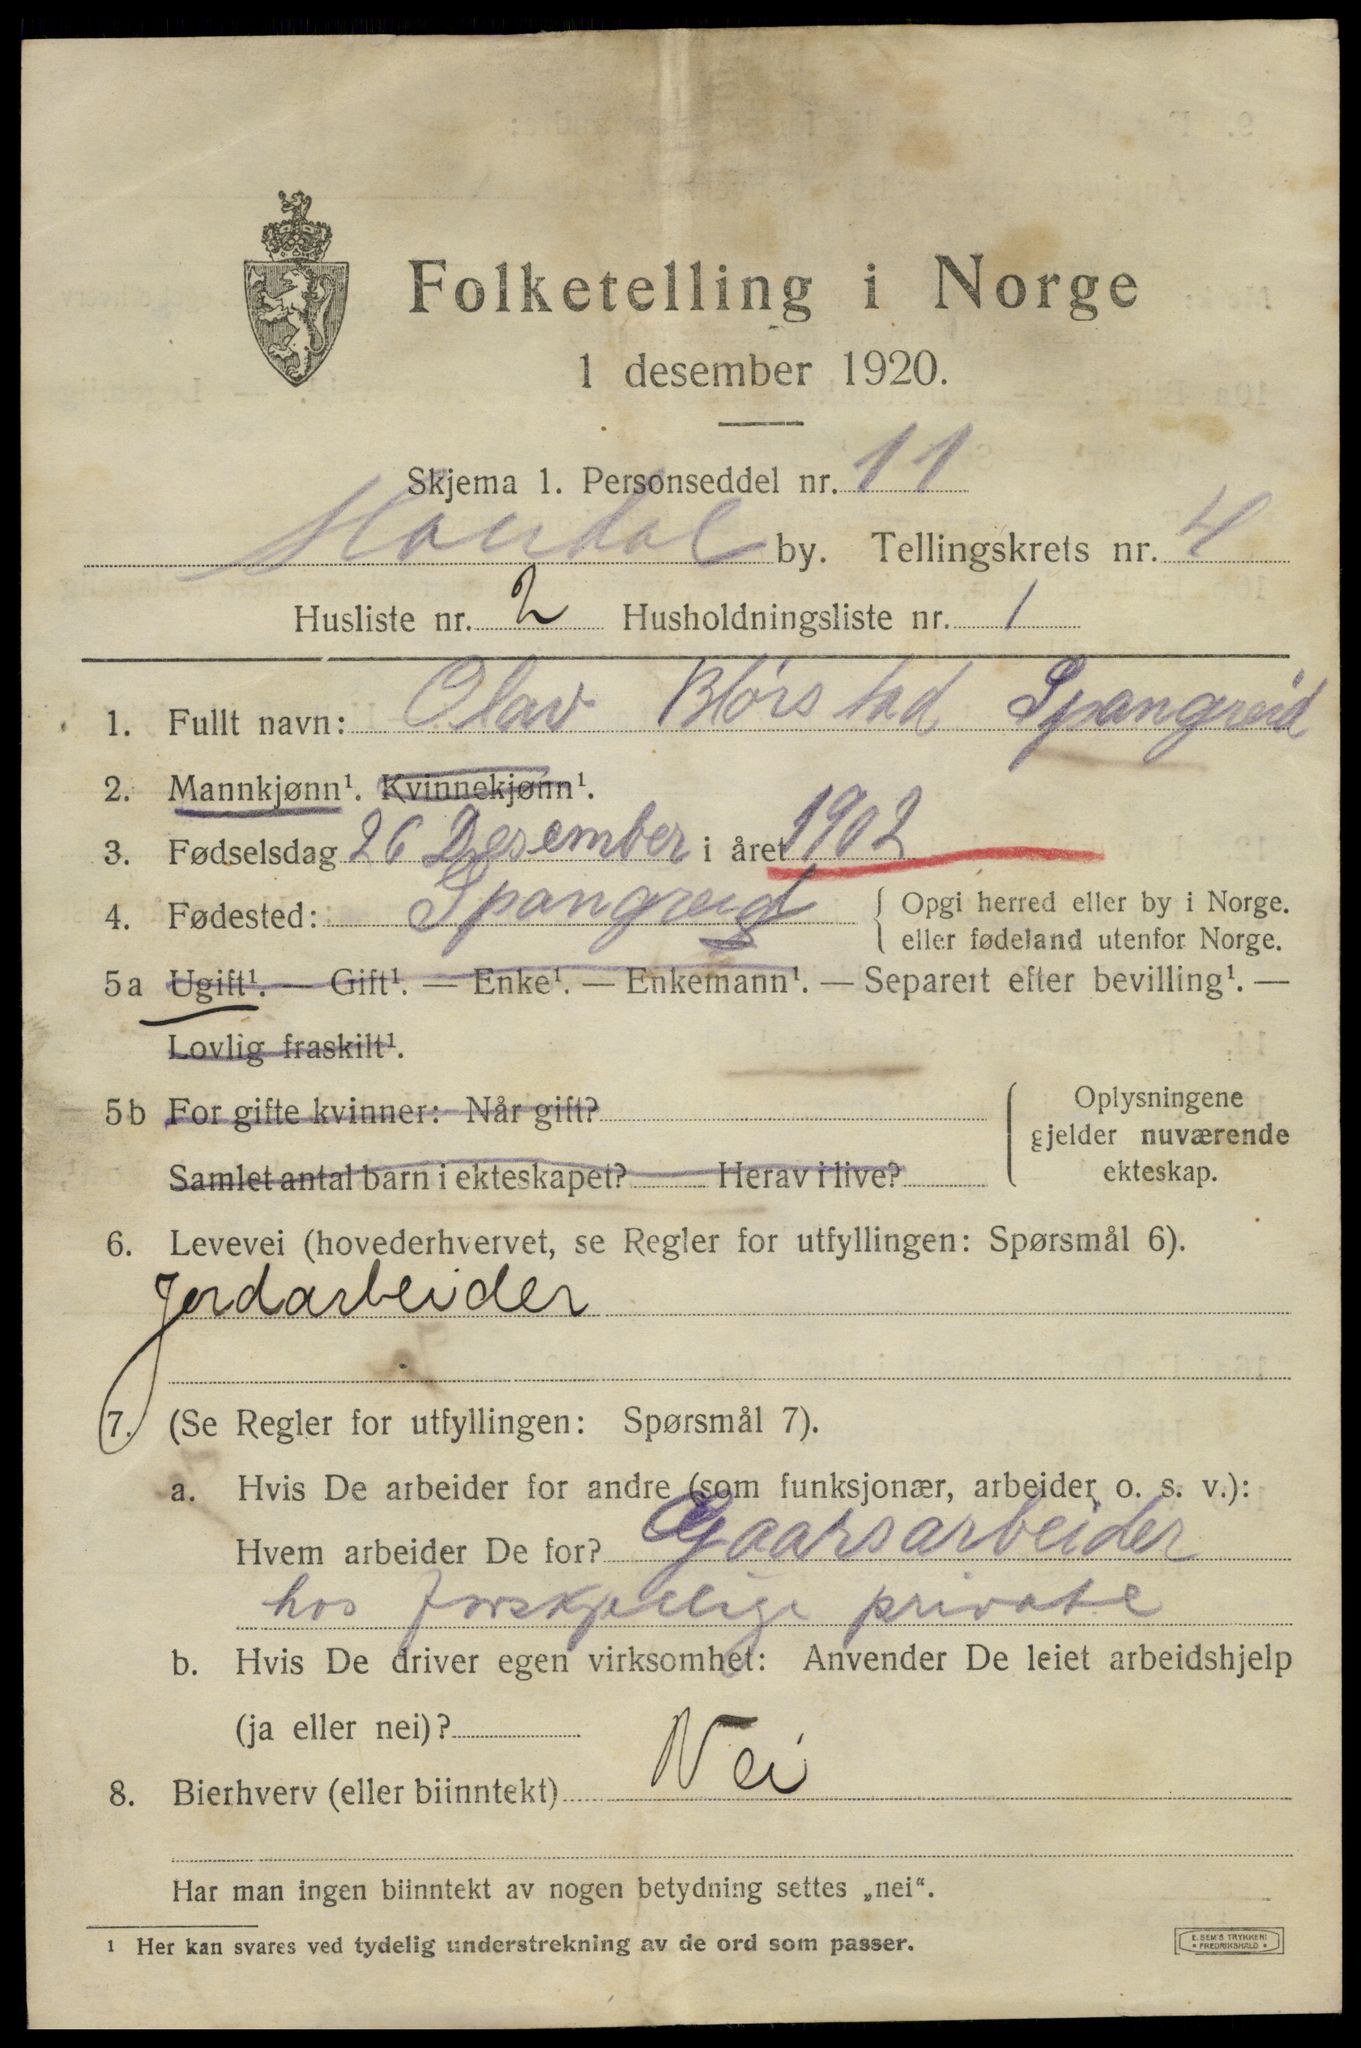 Folketelling i Norge
1 desember 1920.
Skjema 1. Personseddel nr. 11
Mandal by. Tellingskrets nr. 4
Husliste nr. 2 Husholdningsliste nr. 1
1. Fullt navn: Olav Blørstad Spangreid
2. Mannkjønn¹. Kvinnekjønn¹.
3. Fødselsdag 26 Desember i året 1902
4. Fødested: Spangreid { Opgi herred eller by i Norge.
eller fødeland utenfor Norge.
5a Ugift¹. — Gift¹. — Enke¹. — Enkemann¹. — Separert efter bevilling¹. —
Lovlig fraskilt¹.
5b For gifte kvinner: Når gift?
Samlet antal barn i ekteskapet? Herav i live?
Oplysningene
gjelder nuværende
ekteskap.
6. Levevei (hovederhvervet, se Regler for utfyllingen: Spørsmål 6).
Jordarbeider
7. (Se Regler for utfyllingen: Spørsmål 7).
a. Hvis De arbeider for andre (som funksjonær, arbeider o. s. v.):
Hvem arbeider De for? Gaarsarbeider
hos forskjellige private
b. Hvis De driver egen virksomhet: Anvender De leiet arbeidshjelp
(ja eller nei)?
8. Bierhverv (eller biinntekt) Nei
Har man ingen biinntekt av nogen betydning settes „nei“.
¹ Her kan svares ved tydelig understrekning av de ord som passer.
E. SEM'S TRYKKERI
• FREDRIKSHALD •